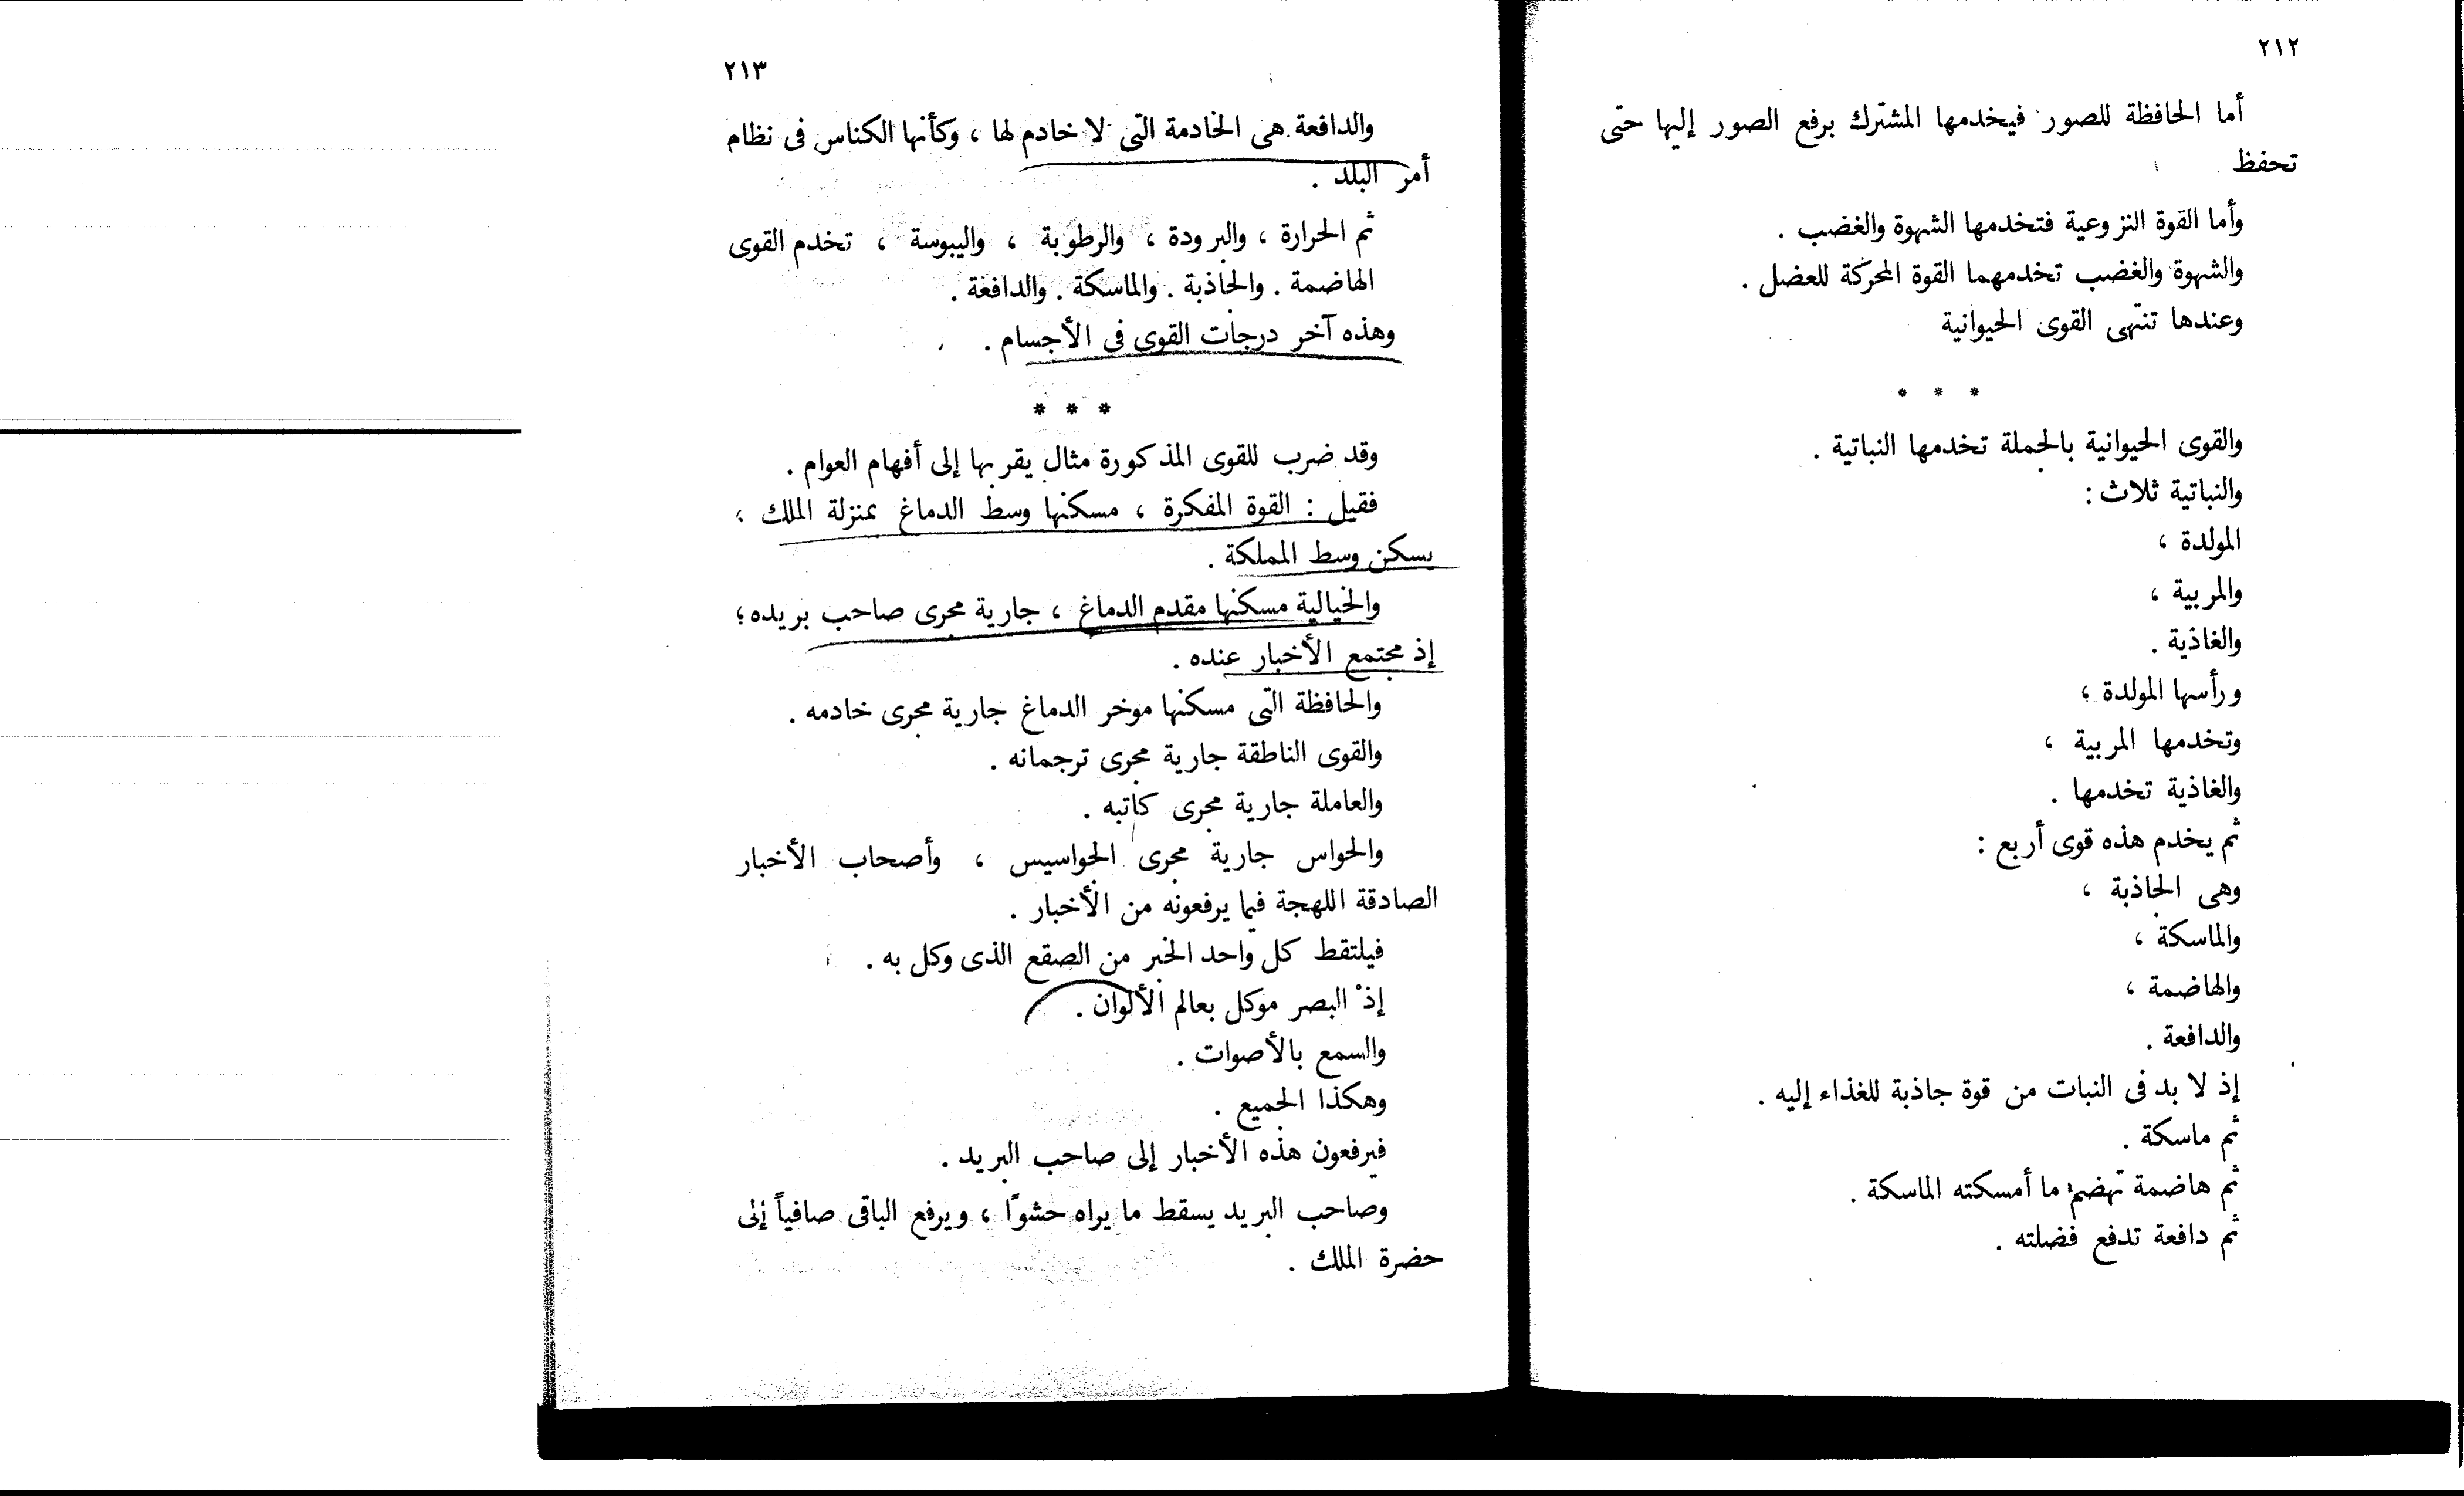 ٢١٢
أما الحافظة للصور فيخدمها المشترك برفع الصور إليها حتى
تحفظ .
وأما القوة النزوعية فتخدمها الشهوة والغضب .
والشهوة والغضب تخدمهما القوة المحركة للعضل .
وعندها تنتهى القوى الحيوانية
* * *
والقوى الحيوانية بالجملة تخدمها النباتية .
والنباتية ثلاث :
المولدة ،
والمربية ،
والغاذية .
ورأسها المولدة ؛
وتخدمها المربية ،
والغاذية تخدمها .
ثم يخدم هذه قوى أربع :
وهى الجاذبة ،
والماسكة ،
والهاضمة ،
والدافعة .
إذ لا بد فى النبات من قوة جاذبة للغذاء إليه .
ثم ماسكة .
ثم هاضمة تهضم ما أمسكته الماسكة .
ثم دافعة تدفع فضلته .
٢١٣
والدافعة هى الخادمة التى لا خادم لها ، وكأنها الكناس فى نظام
أمر البلد .
ثم الحرارة ، والبرودة ، والرطوبة ، واليبوسة ، تخدم القوى
الهاضمة . والجاذبة . والماسكة . والدافعة .
وهذه آخر درجات القوى فى الأجسام .
* * *
وقد ضرب للقوى المذكورة مثال يقربها إلى أفهام العوام .
فقيل : القوة المفكرة ، مسكنها وسط الدماغ بمنزلة الملك ،
يسكن وسط المملكة .
والخيالية مسكنها مقدم الدماغ ، جارية مجرى صاحب بريده ؛
إذ مجتمع الأخبار عنده .
والحافظة التى مسكنها موخر الدماغ جارية مجرى خادمه .
والقوى الناطقة جارية مجرى ترجمانه .
والعاملة جارية مجرى كاتبه .
والحواس جارية مجرى الجواسيس ، وأصحاب الأخبار
الصادقة اللهجة فيما يرفعونه من الأخبار .
فيلتقط كل واحد الخبر من الصقع الذى وكل به .
إذْ البصر موكل بعالم الألوان .
والسمع بالأصوات .
وهكذا الجميع .
فيرفعون هذه الأخبار إلى صاحب البريد .
وصاحب البريد يسقط ما يراه حشوًا ، ويرفع الباقى صافياً إلى
حضرة الملك .